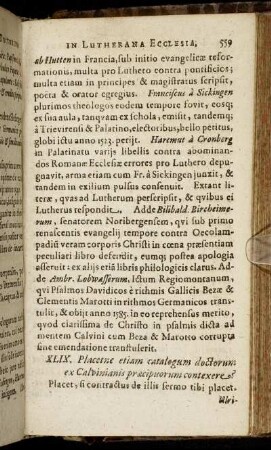 IN LUTHERANA ECCLESIA. 559
ab Hutten in Francia, sub initio evangelicæ refor-
mationis, multa pro Luthero contra pontificios;
multa etiam in principes & magistratus scripsit,
poëta & orator egregius. Franciscus à Sickingen
plurimos theologos eodem tempore fovit, eosq;
ex sua aula, tanqvam ex schola, emisit, tandemq;
à Trievirensi & Palatino, electoribus, bello petitus,
globi ictu anno 1523. perijt. Hartmut à Cronberg
in Palatinatu varijs libellis contra abominan-
dos Romanæ Ecclesiæ errores pro Luthero depu-
gnavit, arma etiam cum Fr. à Sickingen junxit, &
tandem in exilium pulsus consenuit. Extant li-
teræ, qvas ad Lutherum perscripsit, & qvibus ei
Lutherus respondit. Adde Bilibald. Birckheime-
rum, senatorem Noribergensem, qvi sub primo
renascentis evangelij tempore contra Oecolam-
padiū veram corporis Christi in cœna præsentiam
peculiari libro defendit, eumq; postes apologia
asseruit: ex alijs etiā libris philologicis clarus. Ad-
de Ambr. Lobwasserum, Ictum Regiomontanum,
qvi Psalmos Davidicos è rithmis Gallicis Bezæ &
Clementis Marotti in rithmos Germanicos trans-
tulit, & obijt anno 1585. in eo reprehensus merito,
qvod clarissima de Christo in psalmis dicta ad
mentem Calvini cum Beza & Marotto corrupta
sine emendatione transtulerit.
XLIX. Placetne etiam catalogum doctorum
ex Calvinianis præcipuorum contexere?
Placet, si contractus de illis sermo tibi placet.